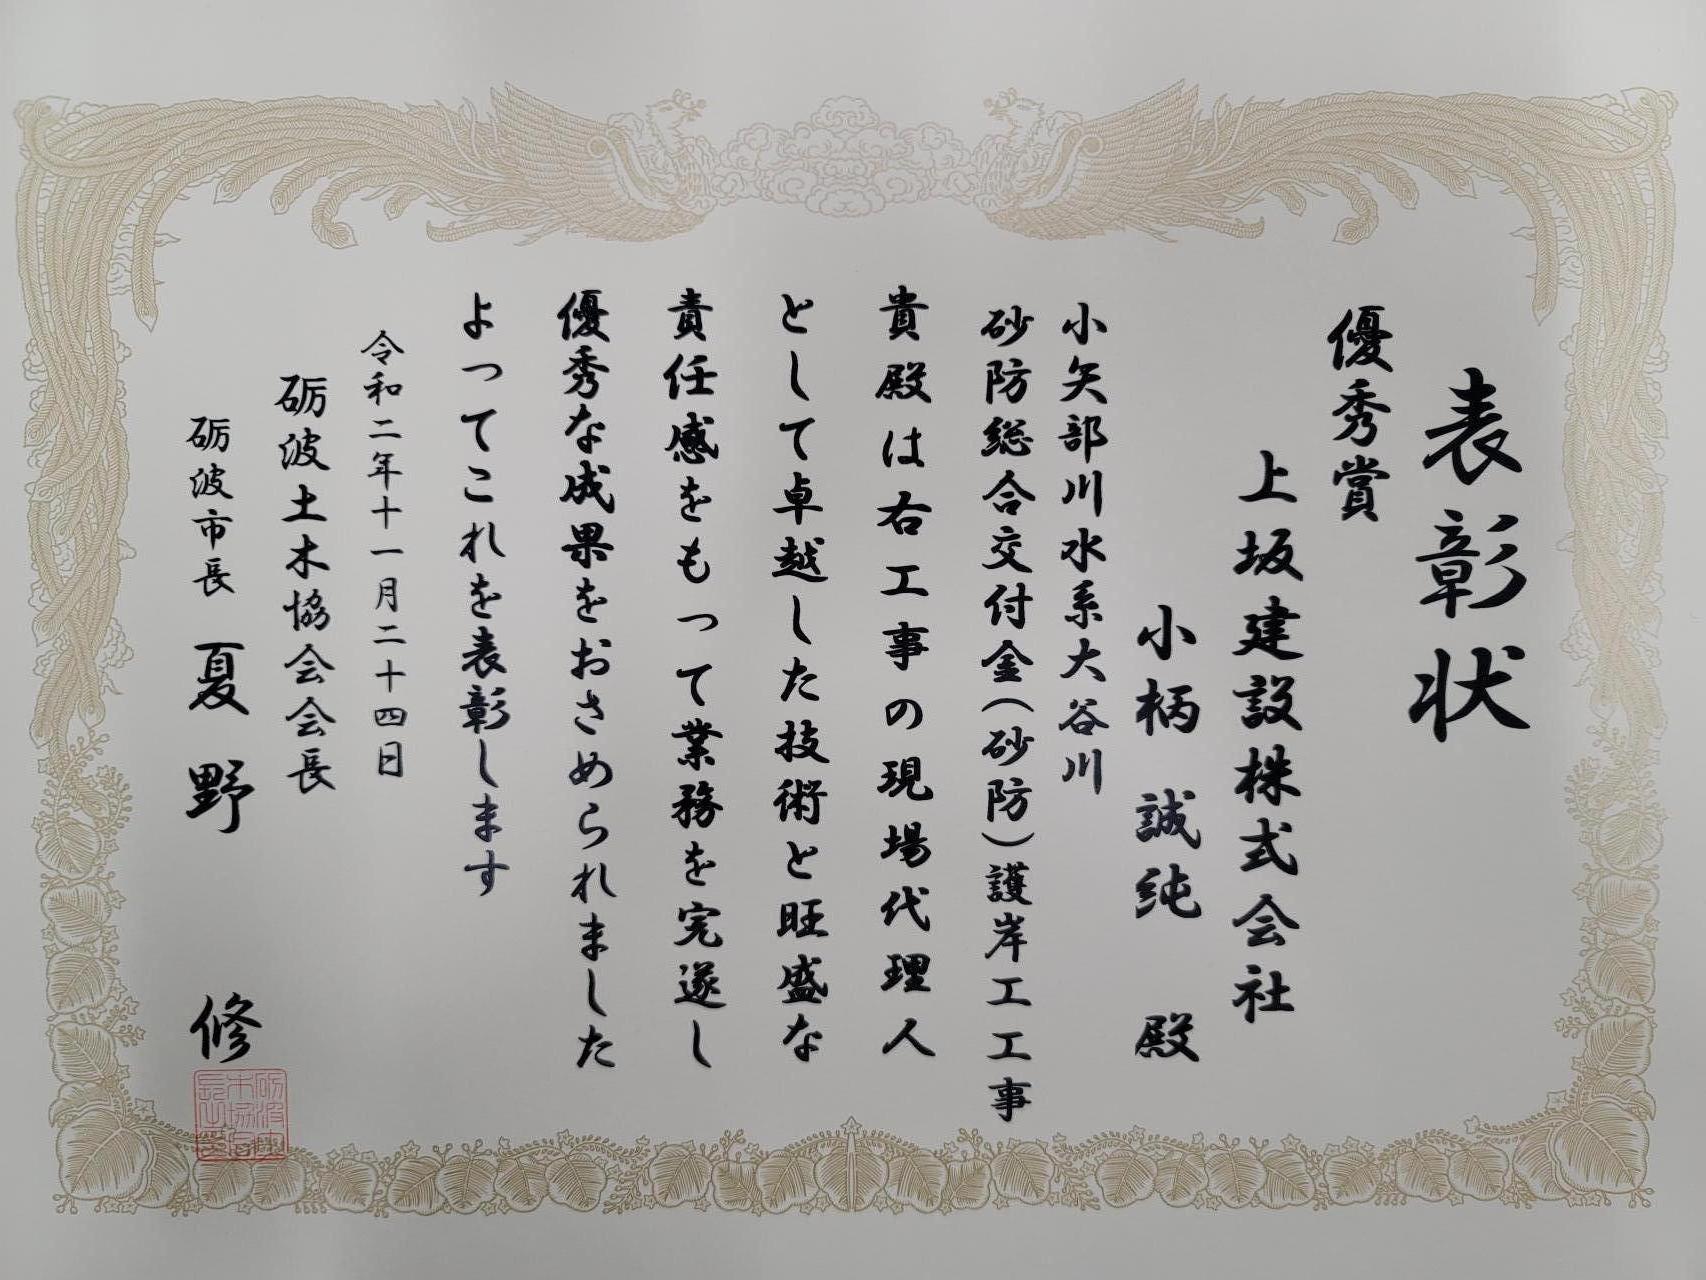 表彰状
優秀賞
上坂建設株式会社
小柄 誠純 殿
小矢部川水系大谷川
砂防総合交付金(砂防)護岸工工事
貴殿は右工事の現場代理人
として卓越した技術と旺盛な
責任感をもって業務を完遂し
優秀な成果をおさめられました
よってこれを表彰します
令和二年十一月二十四日
砺波土木協会会長
砺波市長 夏野 修